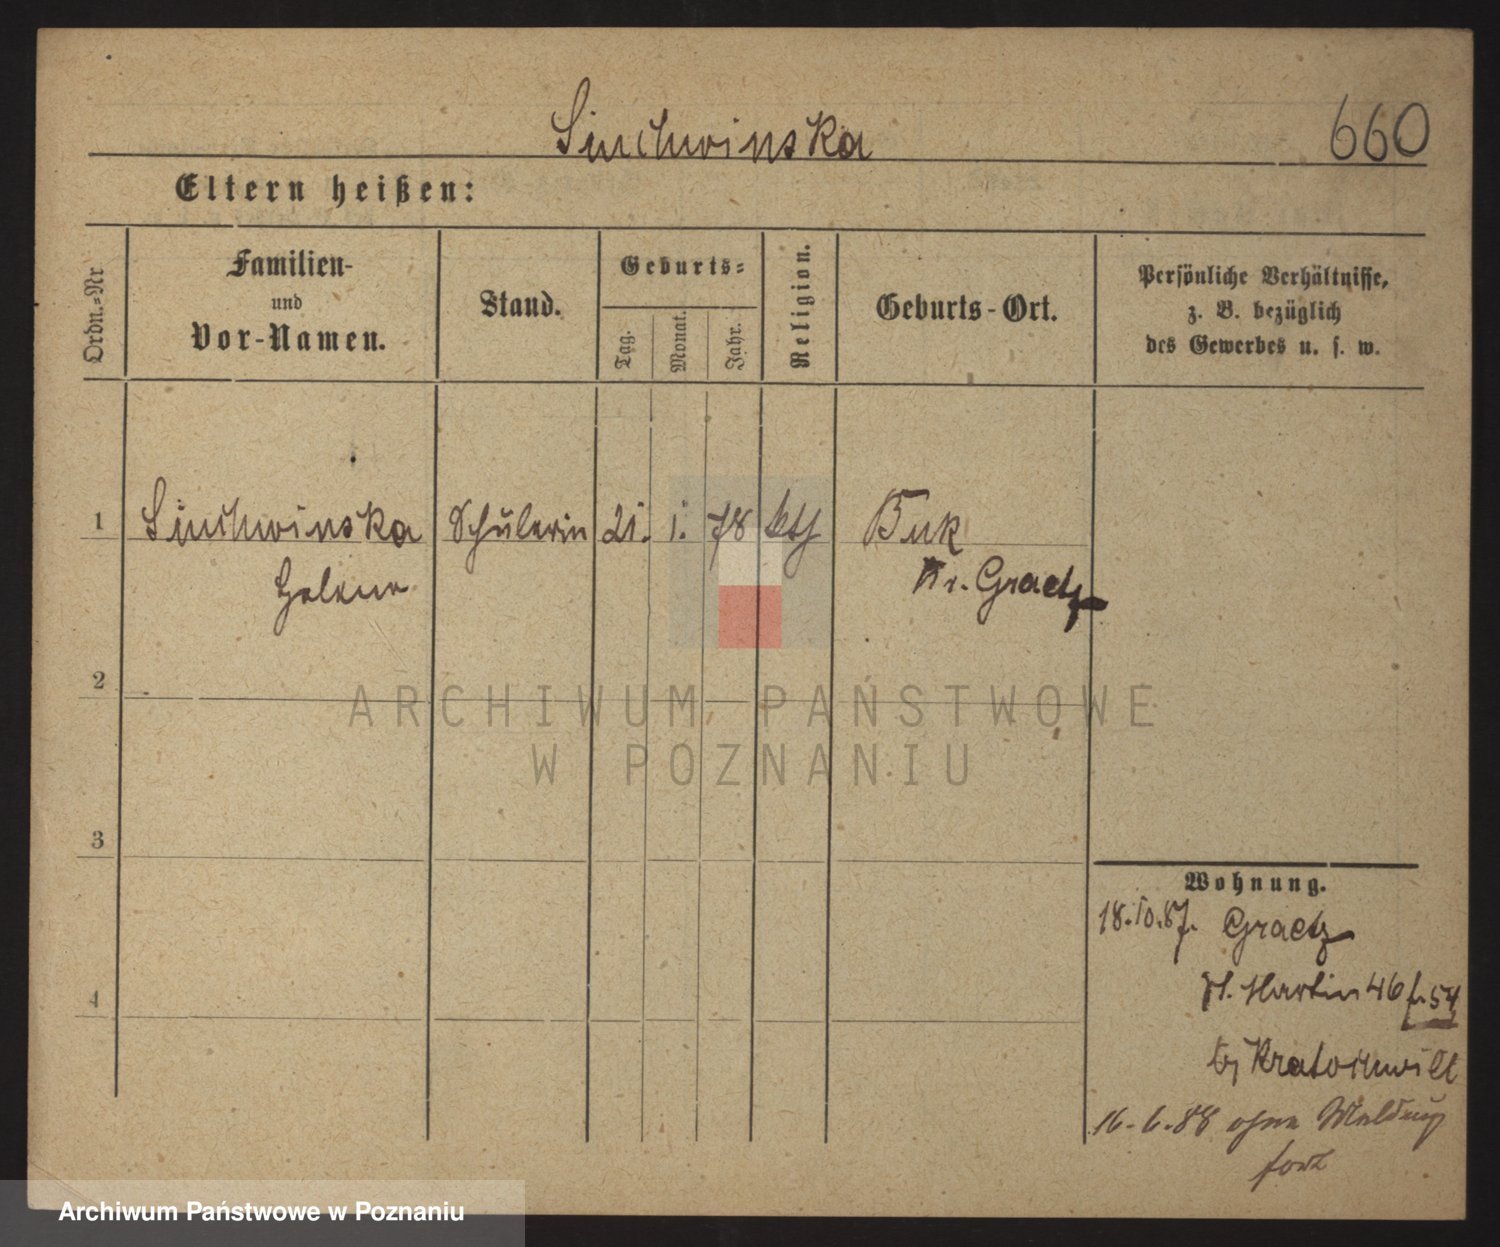 Siuchninska
660
Eltern heißen:
Ordn.=Nr
Familien-
und
Vor-Namen.
Stand.
Geburts=
Tag.
Monat.
Jahr.
Religion.
Geburts-Ort.
Persönliche Verhältnisse,
z. B. bezüglich
des Gewerbes u. s. w.
1
Siuchninska Schülerin 21. 1. 78 kth Buk
Helene
Kr. Graetz
2
ARCHIWUM PAŃSTWOWE
W POZNANIU
3
Wohnung.
18.10.87. Graetz
4
St. Martin 46 f. 54
bj Kratochwill
16-6.88 ohne Meldung
fort
Archiwum Państwowe w Poznaniu